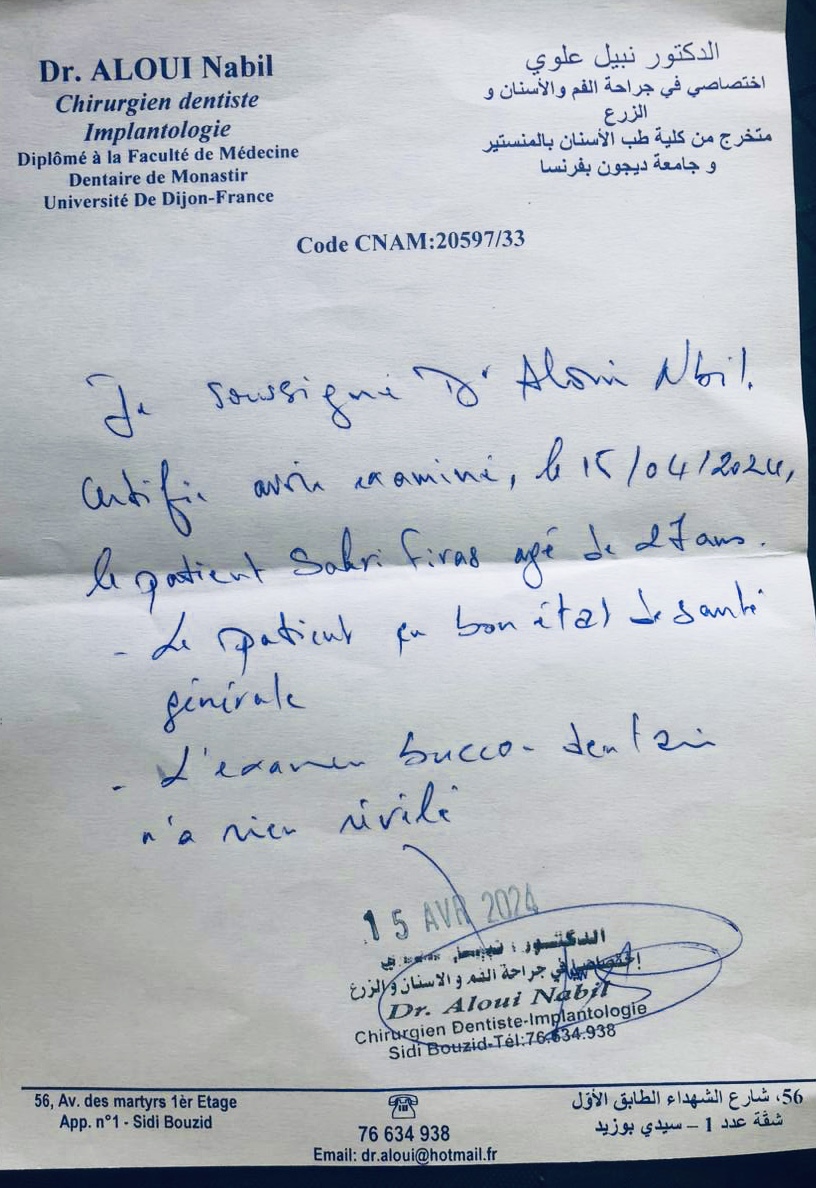 Dr. ALOUI Nabil
Chirurgien dentiste
Implantologie
Diplômé à la Faculté de Médecine
Dentaire de Monastir
Université De Dijon-France
الدكتور نبيل علوي
اختصاصي في جراحة الفم والأسنان و
الزرع
متخرج من كلية طب الأسنان بالمنستير
و جامعة ديجون بفرنسا
Code CNAM:20597/33
Je soussigné Dr Aloui Nbil.
Certifie avoir examiné, le 15/04/2024,
le patient Sakri Firas agé de 27 ans.
- Le patient en bon état de santé
générale
- L'examen bucco-dentaire
n'a rien révélé
15 AVR 2024
الدكتور :
إختصاصي في جراحة الفم و الاسنان و الزرع
Dr. Aloui Nabil
Chirurgien Dentiste-Implantologie
Sidi Bouzid-Tél:76.634.938
56, Av. des martyrs 1èr Etage
App. n°1 - Sidi Bouzid
76 634 938
Email: dr.aloui@hotmail.fr
56، شارع الشهداء الطابق الأوّل
شقة عدد 1 – سيدي بوزيد